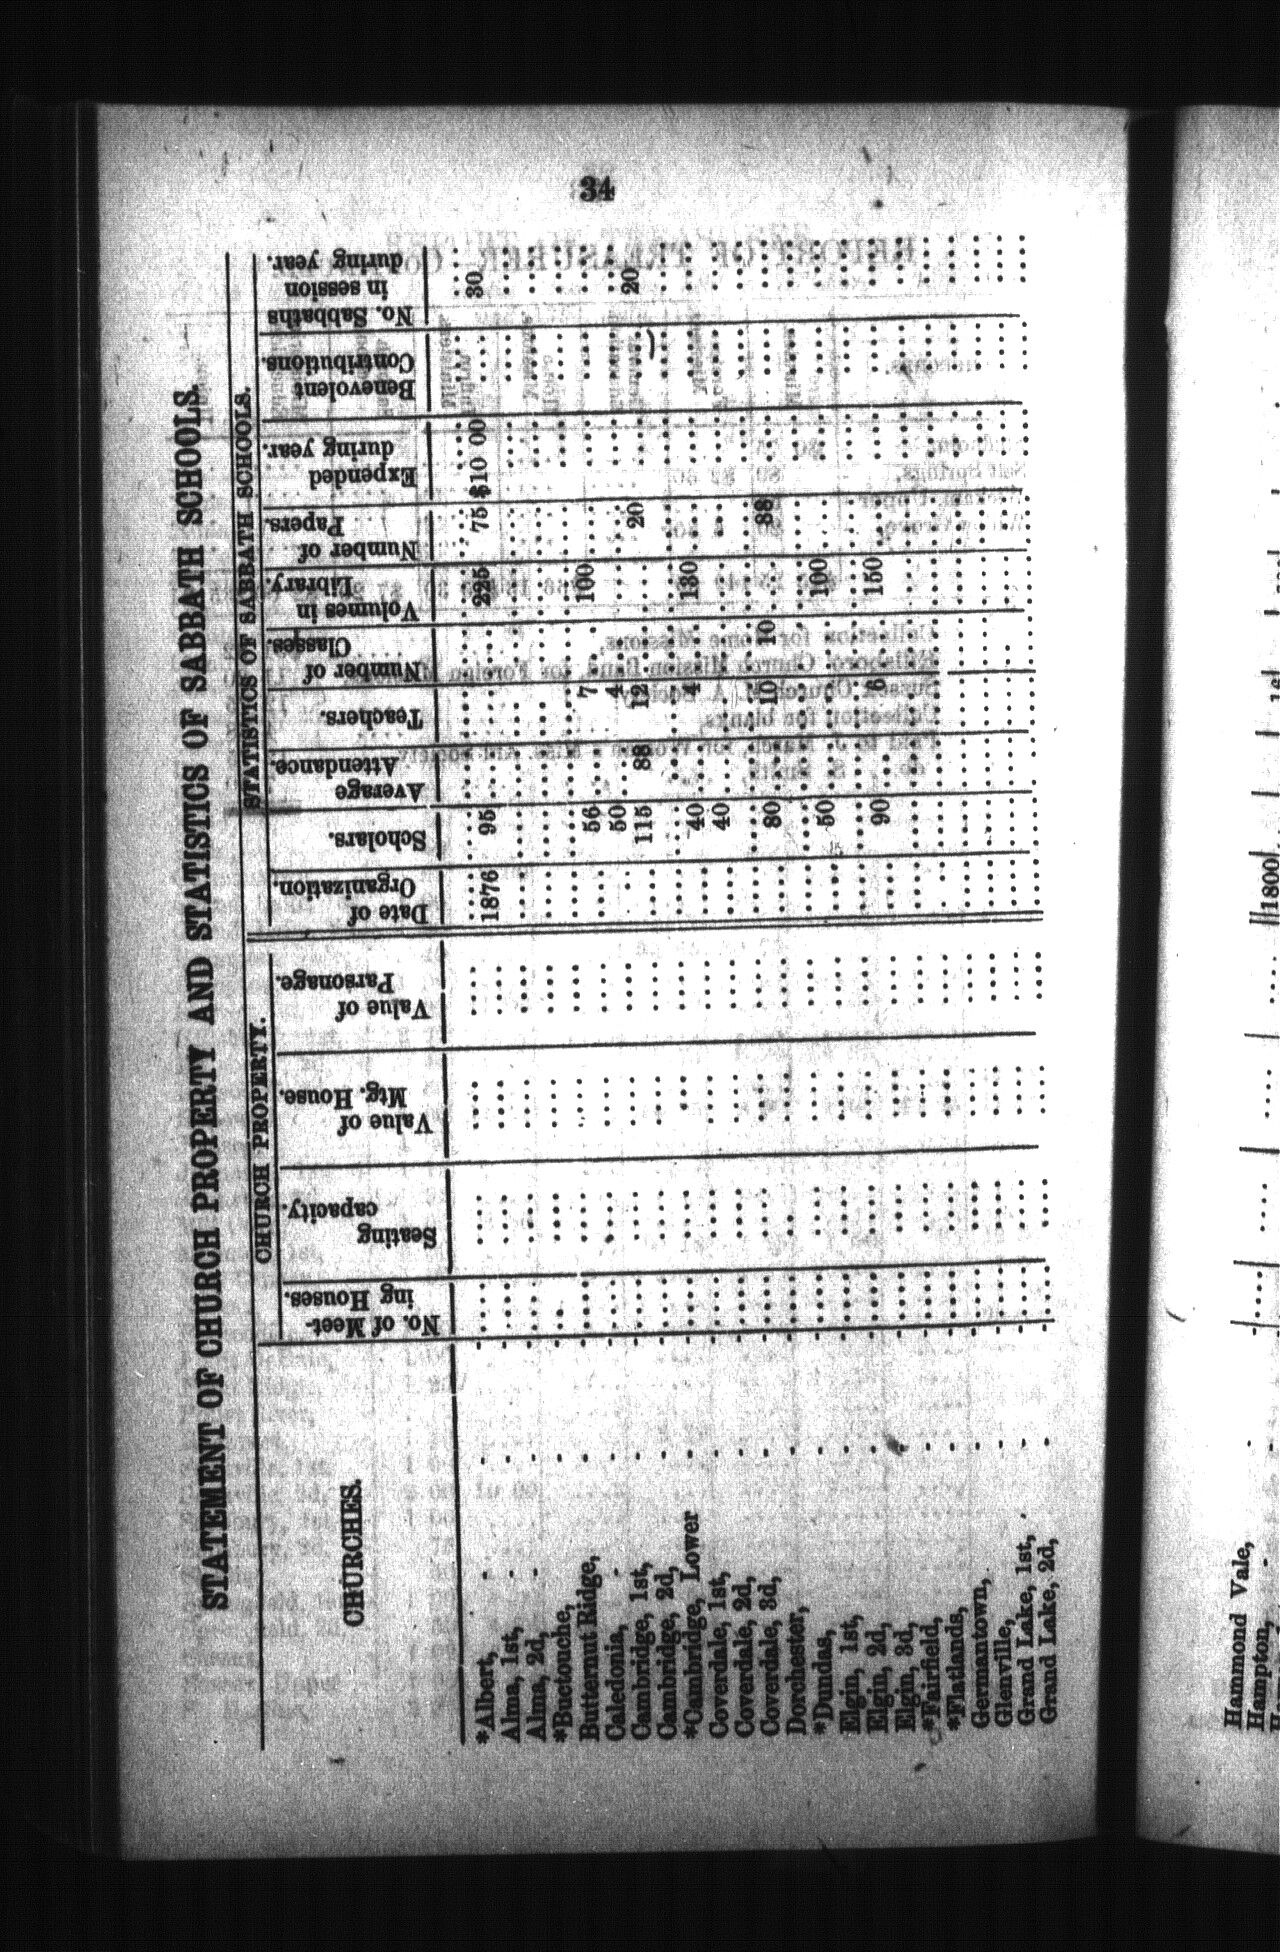 34
STATEMENT OF CHURCH PROPERTY AND STATISTICS OF SABBATH SCHOOLS.
CHURCH PROPERTY. STATISTICS OF SABBATH SCHOOLS.
CHURCHES. No. of Meet-ing Houses. Seating capacity. Value of Mtg. House. Value of Parsonage. Date of Organization. Scholars. Average Attendance. Teachers. Number of Classes. Volumes in Library. Number of Papers. Expended during year. Benevolent Contributions. No. Sabbaths in session during year.
*Albert, 1876 95 225 75 $10 00 30
Alma, 1st,
Alma, 2d,
*Buctouche,
Butternut Ridge, 56 7 100
Caledonia, 50 4
Cambridge, 1st, 115 88 12 20 20
Cambridge, 2d,
*Cambridge, Lower 40 4 130
Coverdale, 1st, 40
Coverdale, 2d,
Coverdale, 3d, 80 10 10 88
Dorchester,
*Dundas, 50 100
Elgin, 1st,
Elgin, 2d, 90 6 150
Elgin, 3d,
*Fairfield,
*Flatlands,
Germantown,
Glenville,
Grand Lake, 1st,
Grand Lake, 2d,
Hammond Vale,
Hampton, 1800